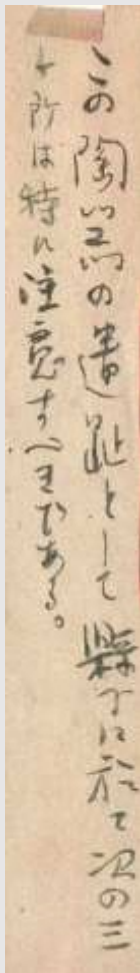 この陶器の遺趾として縣下に於て次の三
ヶ所は特に注意すべきである。